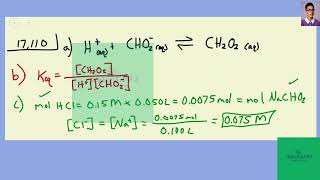 17.110 a) H⁺(aq) + CHO₂⁻(aq) ⇌ CH₂O₂ (aq)
b) Keq = [CH₂O₂] / [H⁺][CHO₂⁻]
c) mol HCl = 0.15 M × 0.050 L = 0.0075 mol = mol NaCHO₂
[Cl⁻] = [Na⁺] = 0.0075 mol / 0.100 L = 0.075 M